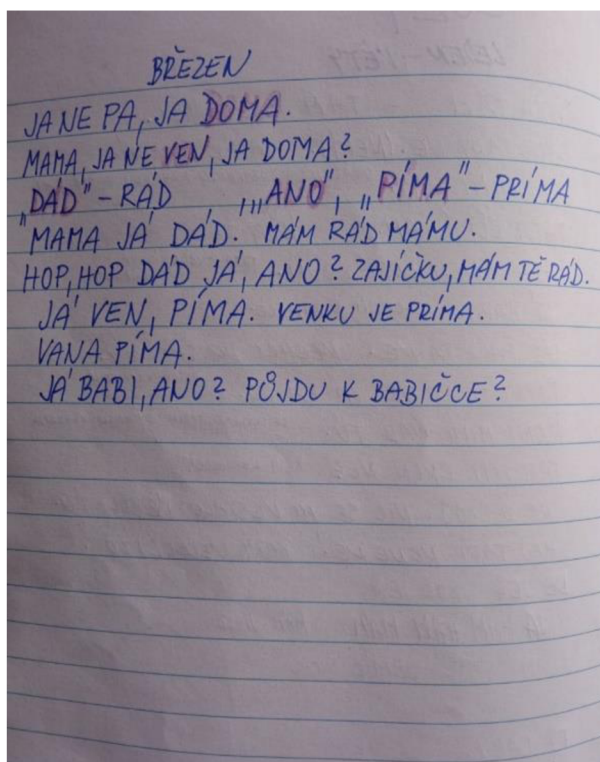 BŘEZEN
JA NE PA, JA DOMA.
MAMA, JA NE VEN, JA DOMA?
„DÁD" – RÁD „„ANO", „PÍMA" – PRÍMA
MAMA JÁ DÁD. MÁM RÁD MÁMU.
HOP, HOP DÁD JÁ, ANO? ZAJÍČKU, MÁM TĚ RÁD.
JÁ VEN, PÍMA. VENKU JE PRÍMA.
VANA PÍMA.
JÁ BABI, ANO? PŮJDU K BABIČCE?